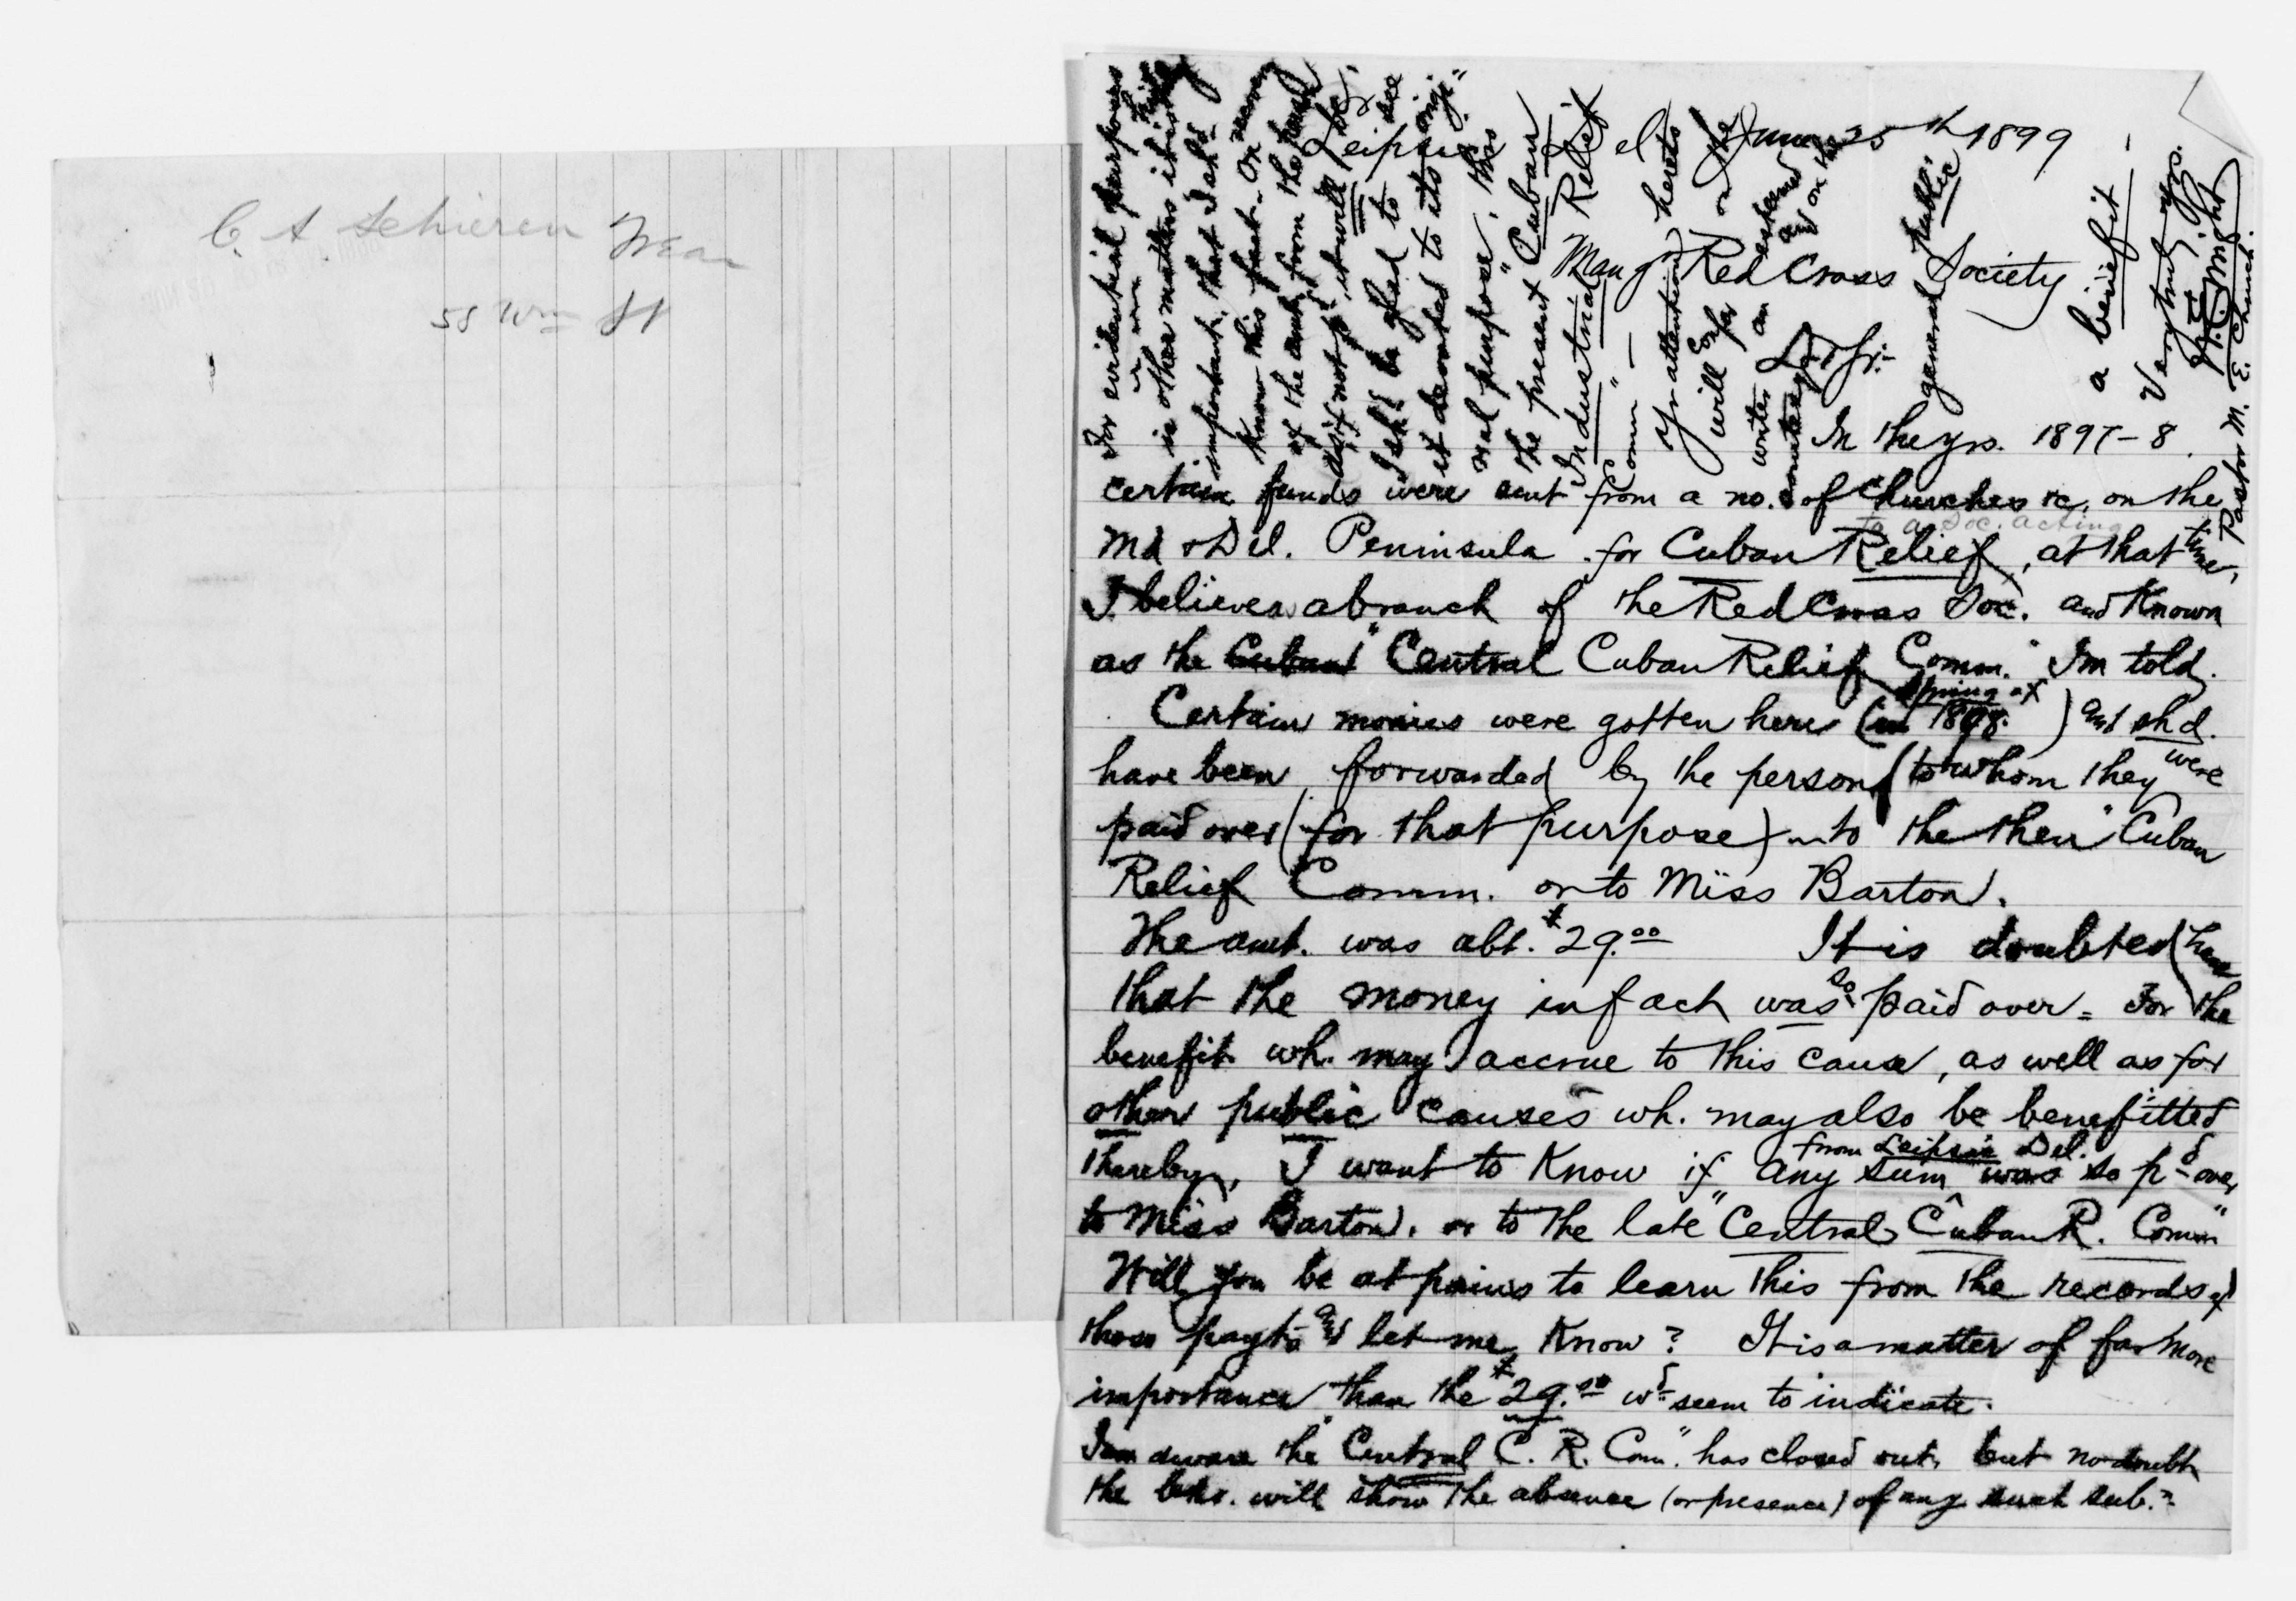 C. A. Schieren
55 Wm St
Leipsic Del June 25th 1899
Man'gr Red Cross Society
Dr Sir:-
In the yrs. 1897-8.
certain funds were sent from a no. of Churches &c. on the
to a Soc. acting
Md & Del. Peninsula for Cuban Relief, at that time,
I believe a branch of the Red Cross Soc. and Known
as the Cuban "Central Cuban Relief Comm." I'm told.
Certain monies were gotten here (in spring of 1898.) and shd.
have been forwarded by the person (to whom they were
paid over (for that purpose) to the then "Cuban
Relief Comm. or to Miss Barton.
The amt. was abt. $29.00 It is doubted (here
that the money in fact was so paid over - For the
benefit wh. may accrue to this cause, as well as for
other public causes wh. may also be benefitted
from Leipsic Del.
thereby, I want to Know if any sum was so pd over
to Miss Barton, or to the late "Central Cuban R. Comm"
Will you be at pains to learn this from the records of
those payts and let me Know? It is a matter of far more
importance than the $29.00 wd seem to indicate.
I am aware the "Central C. R. Com." has closed out, but no doubt
the bks. will show the absence (or presence) of any such sub.n
For evidential purposes
in other matters it is
important, that I shd
Know this fact - On
of the amt from the
if not pd, it will be
I shd be glad to see
it devoted to its orig-
nal purpose, thro
the present "Cuban
Industrial Relief
Comm" -
Yr attention hereto
will confer on the
writer an esteemed
and on the
general public
a benefit -
Very truly yrs.
Wright
Pastor M. E. Church.